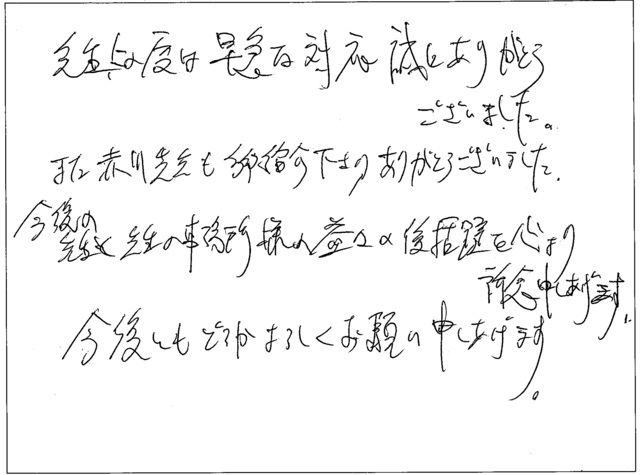 先生この度は早急な対応誠にありがとう
ございました。
また赤川先生も御紹介下さりありがとうございました.
今後の
先生と先生の事務所様の益々の後活躍を心より
祈念申しあげます.
今後ともどうかよろしくお願い申しあげます。